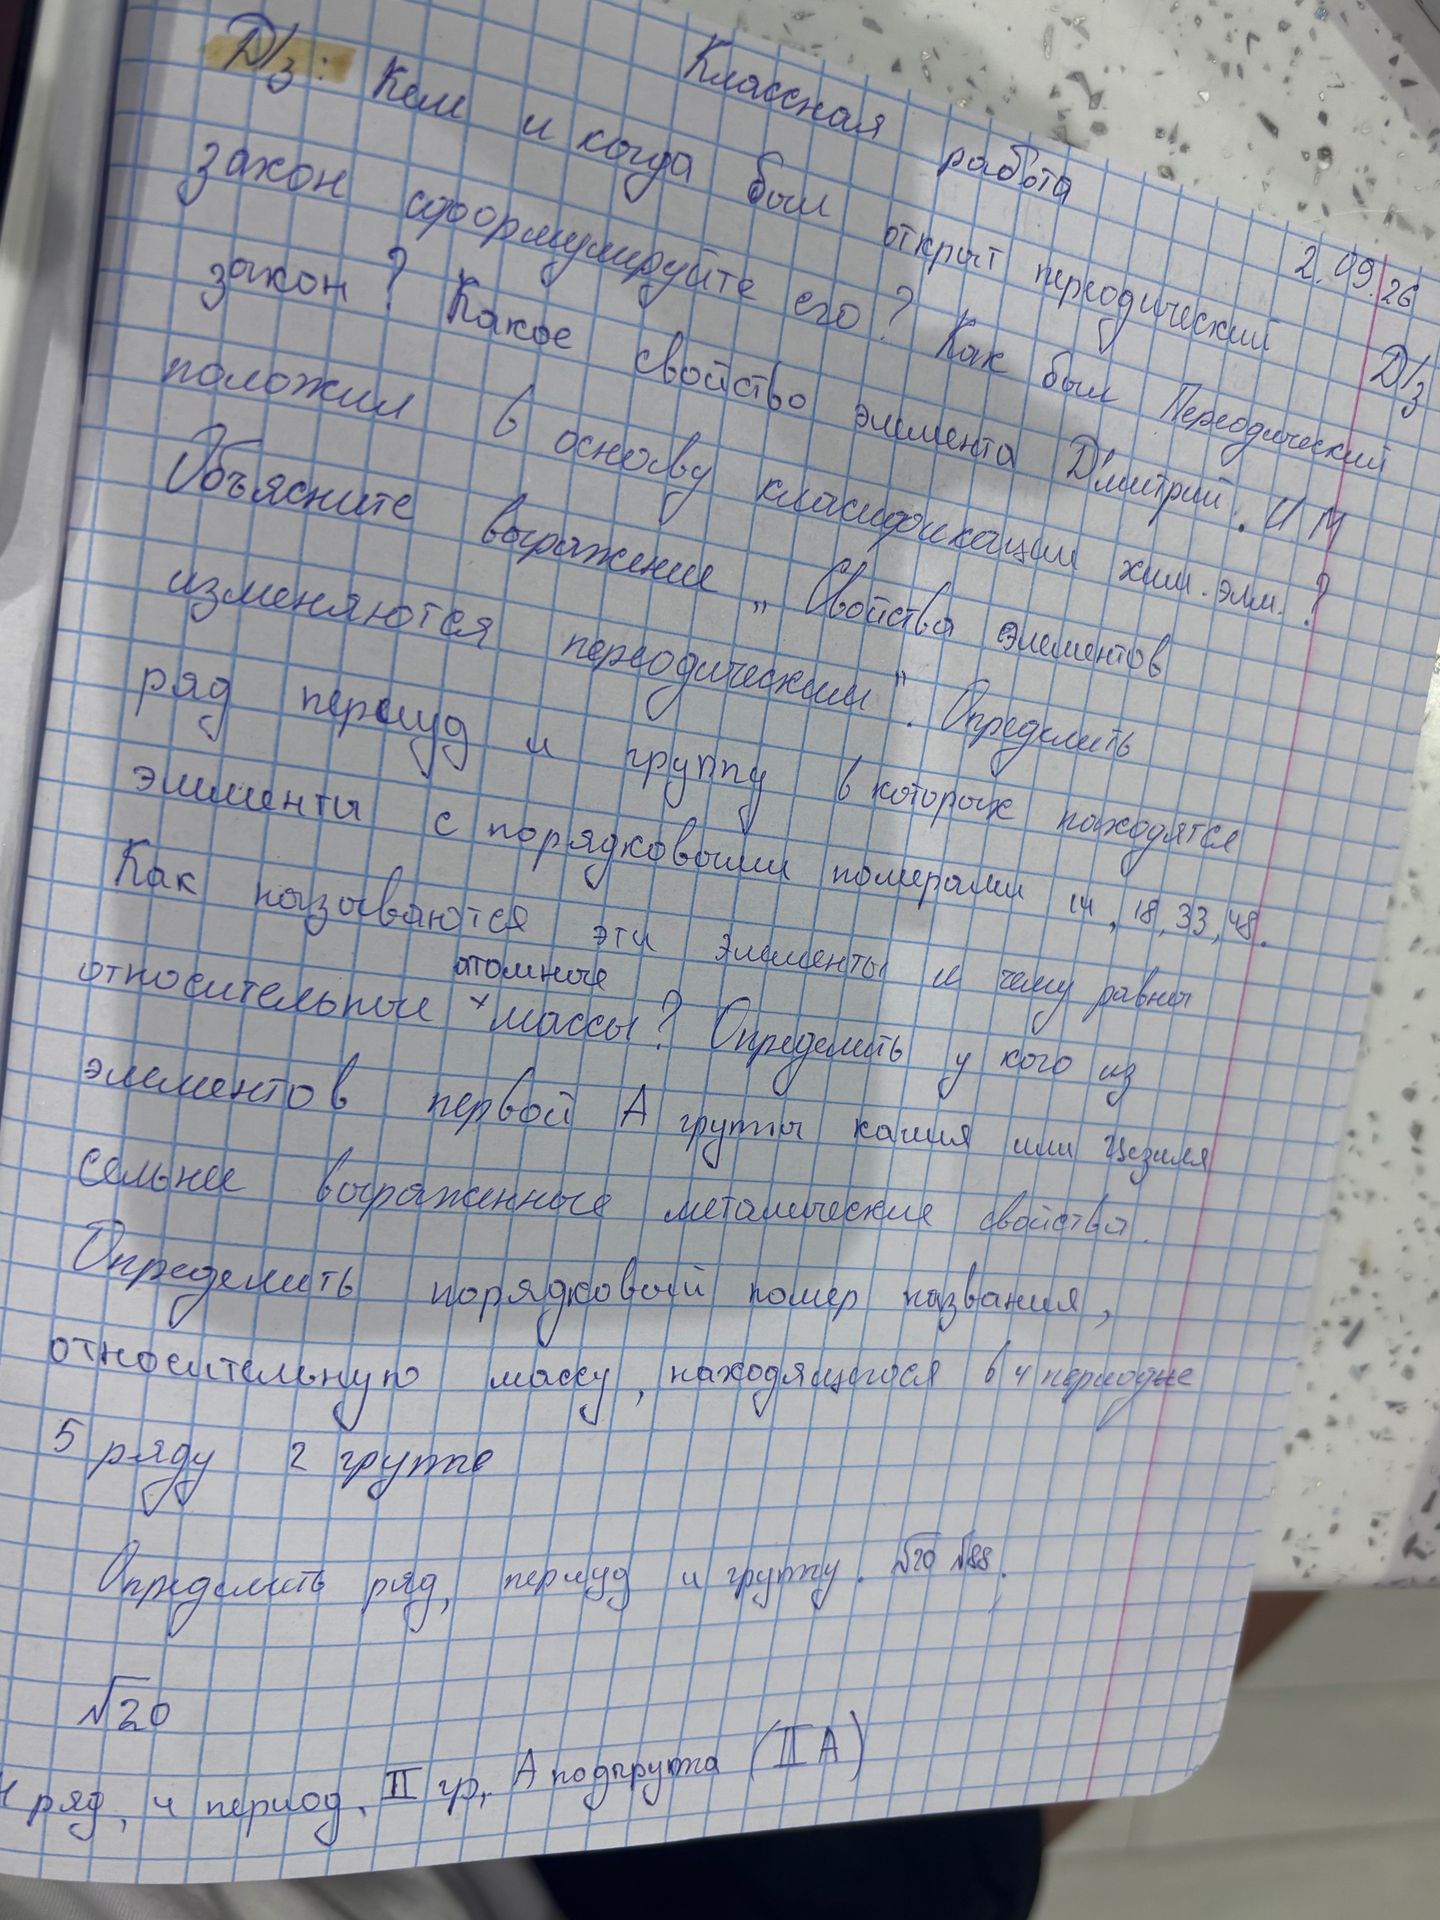 Классная работа
2.09.26
Д/з
Д/з: Кем и когда был открыт переодический
закон сформулируйте его? Как был Переодический
закон? Какое свойство элемента Дмитрий. И М
положил в основу класификации хим. элм.?
Объясните выражение „Свойства элементов
изменяются переодическими". Определить
ряд периуд и группу в которых находятся
элименты с порядковыми номерами 14, 18, 33, 48.
Как называются эти элементы и чему равны
атомные
относительные ˅ массы? Определить у кого из
элементов первой А группы калия или Цезиля
сельнее выраженные металические свойства.
Определить порядковый номер названия,
относительную массу, находящегося в 4 периоде
5 ряду 2 группе
Определить ряд, периуд и группу. №20 №88.
№20
4 ряд, 4 период. II гр, А подгруппа (II А)